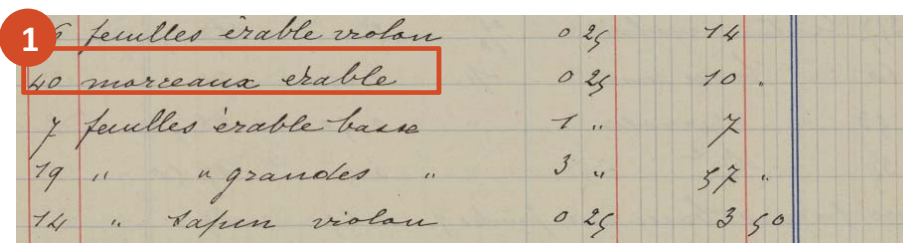 1
6 feuilles érable violon 0 25 14
40 morceaux erable 0 25 10 "
7 feuilles érable basse 1 " 7
19 " " grandes " 3 " 57 "
14 " sapin violon 0 25 3 50